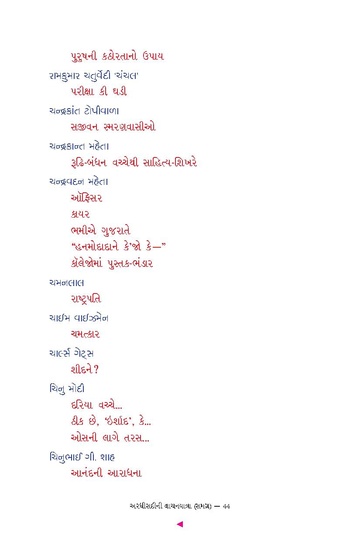 પુરુષની કઠોરતાનો ઉપાય
રામકુમાર ચતુર્વેદી ‘ચંચલ’
પરીક્ષા કી ઘડી
ચન્દ્રકાંત ટોપીવાળા
સજીવન સ્મરણવાસીઓ
ચન્દ્રકાન્ત મહેતા
રૂઢિ-બંધન વચ્ચેથી સાહિત્ય-શિખરે
ચન્દ્રવદન મહેતા
ઑફિસર
કાયર
ભમીએ ગુજરાતે
“હનમોદાદાને કે’જો કે—”
કૉલેજોમાં પુસ્તક-ભંડાર
ચમનલાલ
રાષ્ટ્રપતિ
ચાઈમ વાઈઝમેન
ચમત્કાર
ચાર્લ્સ ગેટ્સ
શીદને ?
ચિનુ મોદી
દરિયા વચ્ચે...
ઠીક છે, ‘ઇર્શાદ’, કે...
ઓસની લાગે તરસ...
ચિનુભાઈ ગી. શાહ
આનંદની આરાધના
અરધી સદીની વાચનયાત્રા (સમગ્ર) — 44